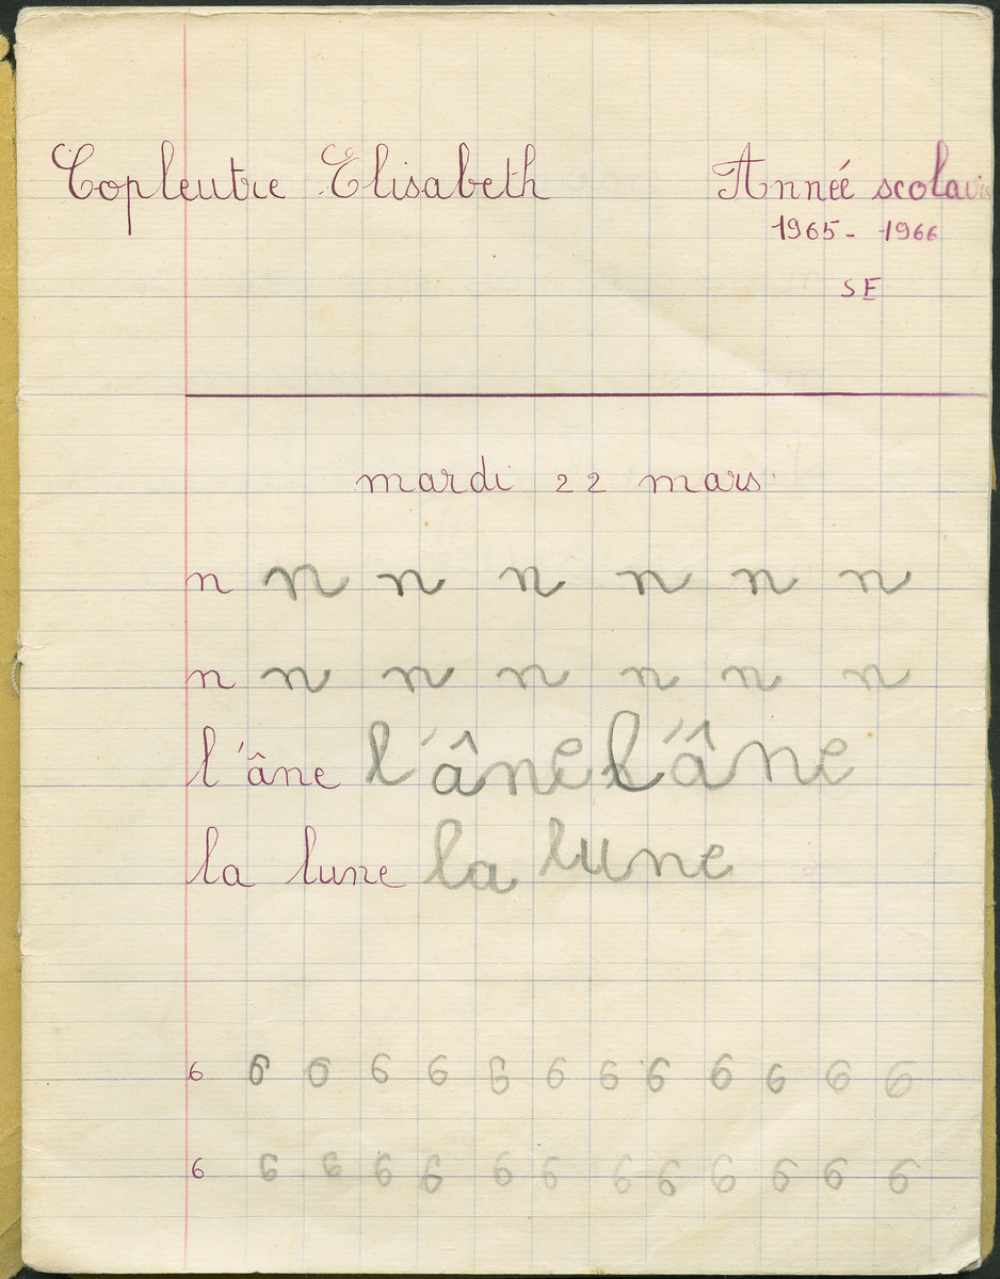 Copleutre Elisabeth Année scolaire
1965 - 1966
SE
mardi 22 mars
n n n n n n n
n n n n n n n
l'âne l'âne l'âne
la lune la lune
6 6 6 6 6 6 6 6 6 6 6 6 6
6 6 6 6 6 6 6 6 6 6 6 6 6